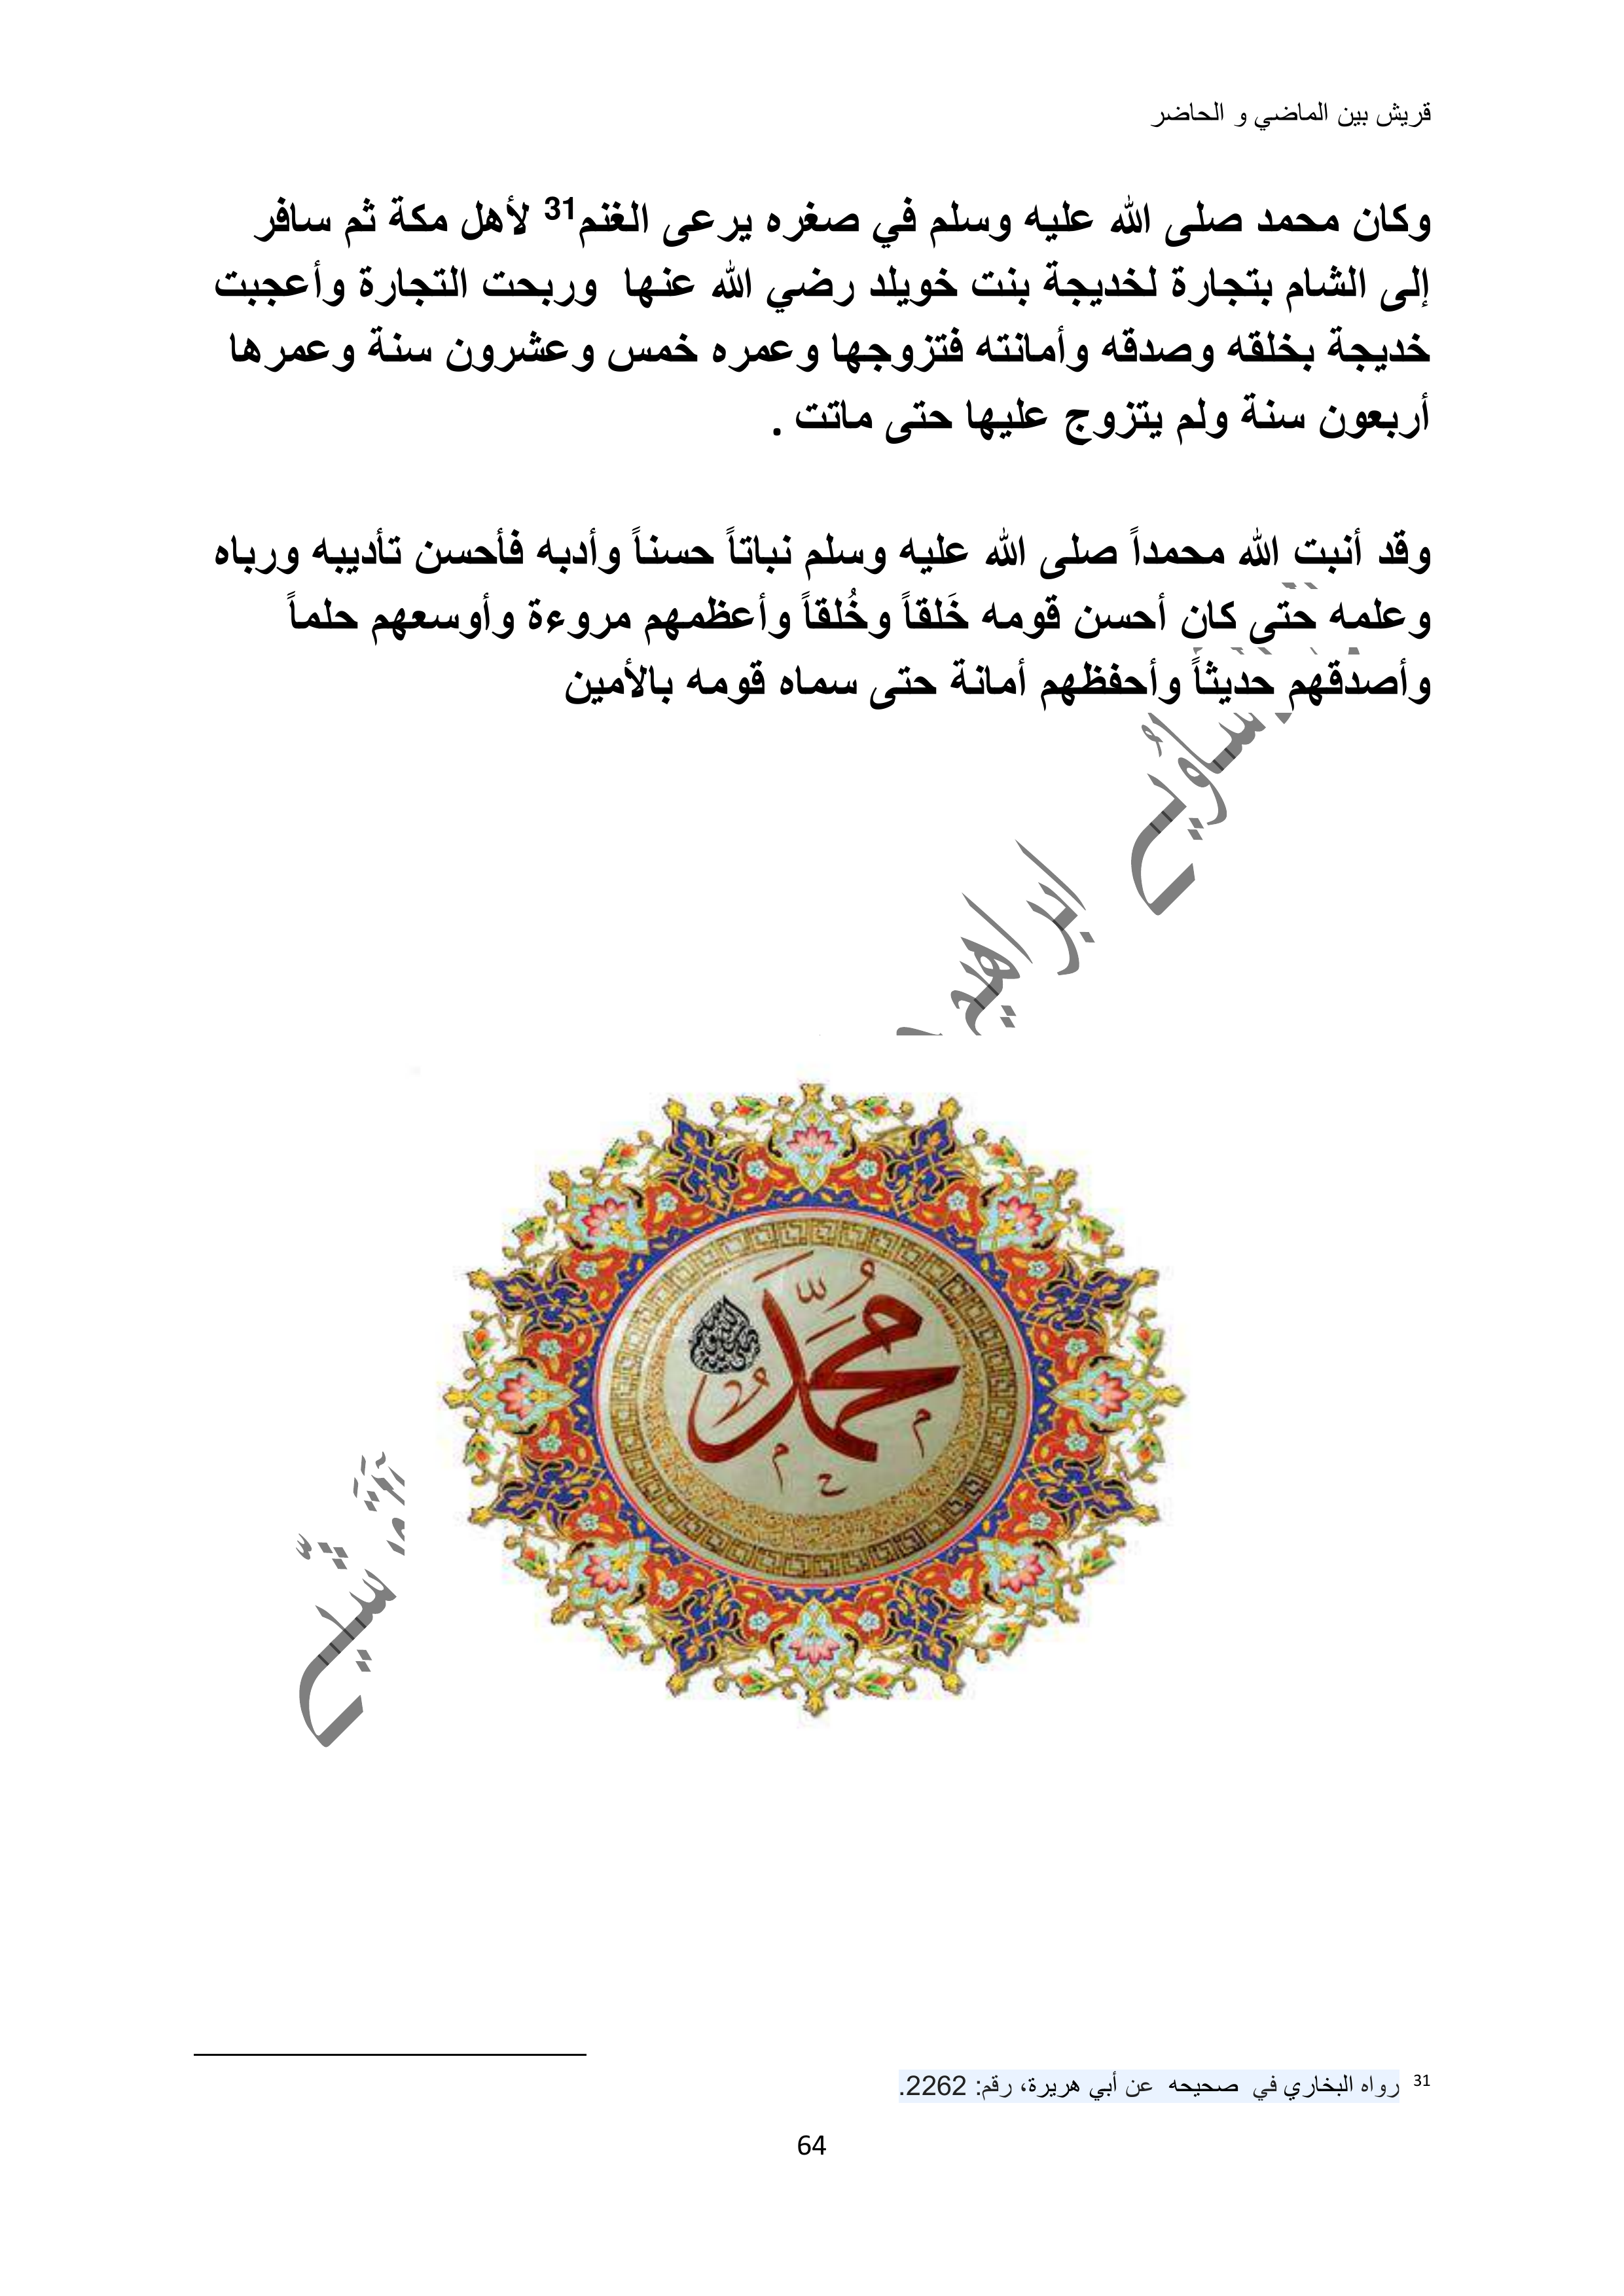 قريش بين الماضي و الحاضر
وكان محمد صلى الله عليه وسلم في صغره يرعى الغنم31 لأهل مكة ثم سافر
إلى الشام بتجارة لخديجة بنت خويلد رضي الله عنها وربحت التجارة وأعجبت
خديجة بخلقه وصدقه وأمانته فتزوجها وعمره خمس وعشرون سنة وعمرها
أربعون سنة ولم يتزوج عليها حتى ماتت .
وقد أنبت الله محمداً صلى الله عليه وسلم نباتاً حسناً وأدبه فأحسن تأديبه ورباه
وعلمه حتى كان أحسن قومه خَلقاً وخُلقاً وأعظمهم مروءة وأوسعهم حلماً
وأصدقهم حديثاً وأحفظهم أمانة حتى سماه قومه بالأمين
محمد
31 رواه البخاري في صحيحه عن أبي هريرة، رقم: 2262.
64